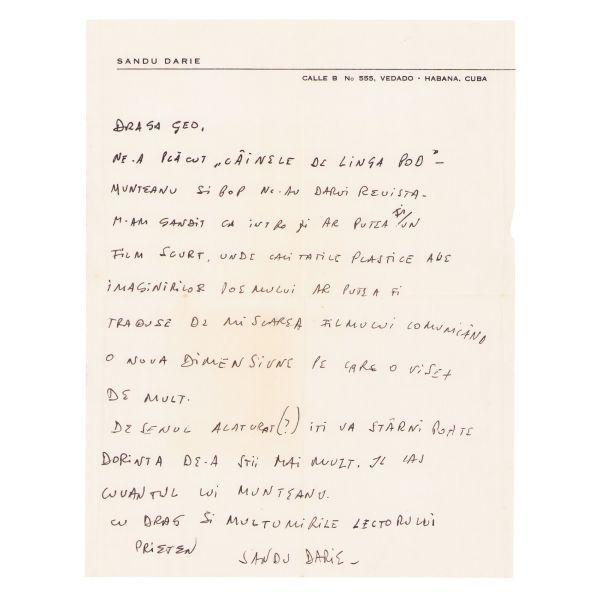 SANDU DARIE
CALLE B No 555, VEDADO · HABANA, CUBA
DRAGA GEO,
NE-A PLĂCUT „CÂINELE DE LINGA POD" -
MUNTEANU SI POP NE-AU DARUI REVISTA -
M-AM GANDIT CA INTRO ZI AR PUTEA FI/UN
FILM SCURT, UNDE CALITATILE PLASTICE ALE
IMAGINIRILOR POEMULUI AR PUTEA FI
TRADUSE DE MISCAREA FILMULUI COMUNICÂND
O NOUA DIMENSIUNE PE CARE O VISEZ
DE MULT.
DESENUL ALATURAT(?) ITI VA STÂRNI POATE
DORINTA DE-A STII MAI MULT. IL LAS
CUVANTUL LUI MUNTEANU.
CU DRAG SI MULTUMIRILE LECTORULUI
PRIETEN
SANDU DARIE -